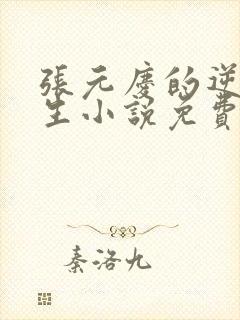 張元慶的逆
生小說免費
秦洛九